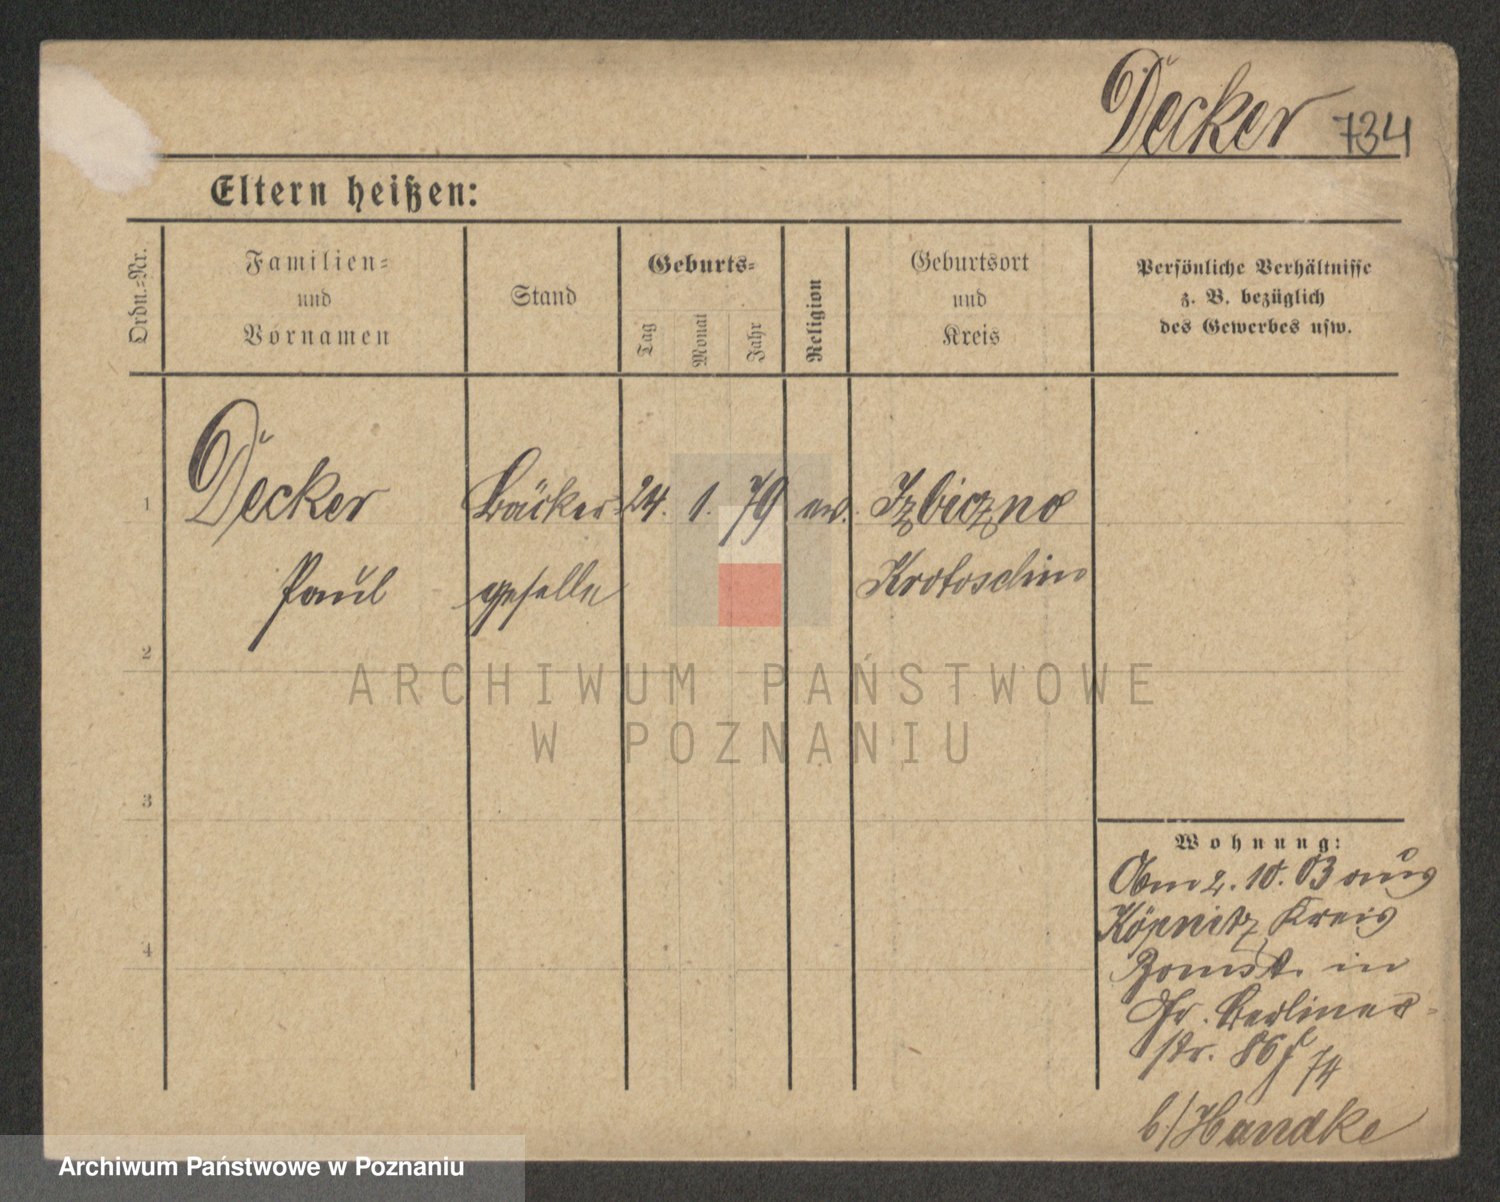 Decker 734
Eltern heißen:
Ordn.=Nr.
Familien=
und
Vornamen
Stand
Geburts=
Tag
Monat
Jahr
Religion
Geburtsort
und
Kreis
Persönliche Verhältnisse
z. B. bezüglich
des Gewerbes usw.
1 Decker Bäcker= 24. 1. 79 ev. Izbiczno
Paul geselle Krotoschin
2
3
4
Wohnung:
Am 2. 10. 03 aus
Köpnitz Kreis
Bomst. in
Gr. Berliner=
str. 86
74
b/ Handke
ARCHIWUM PAŃSTWOWE
W POZNANIU
Archiwum Państwowe w Poznaniu